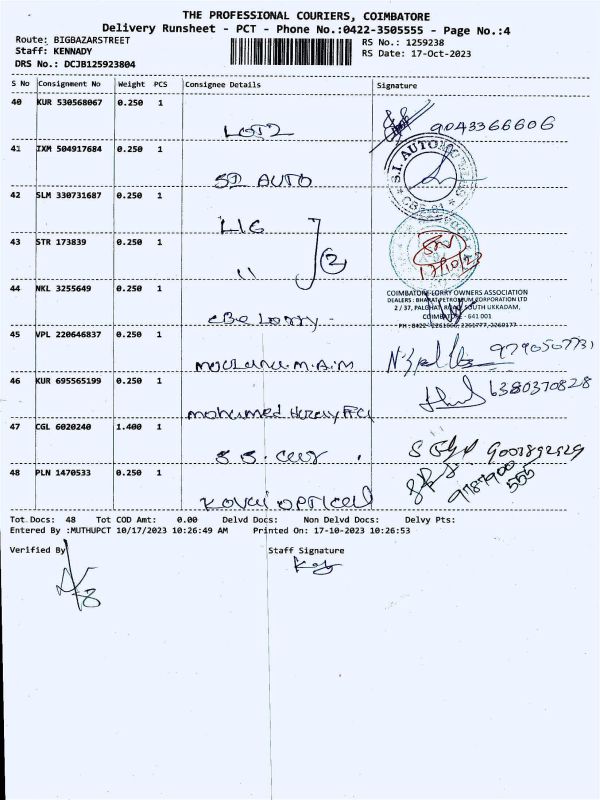 THE PROFESSIONAL COURIERS, COIMBATORE
Delivery Runsheet - PCT - Phone No.:0422-3505555 - Page No.:4
Route: BIGBAZARSTREET RS No.: 1259238
Staff: KENNADY RS Date: 17-Oct-2023
DRS No.: DCJB125923804
S No Consignment No Weight PCS Consignee Details Signature
40 KUR 530568067 0.250 1
9043366606
41 IXM 504917684 0.250 1
S.I. AUTO
SI AUTO
CBE-01
42 SLM 330731687 0.250 1
LIG
43 STR 173839 0.250 1
2
17/10/23
"
44 NKL 3255649 0.250 1
COIMBATORE LORRY OWNERS ASSOCIATION
DEALERS: BHARAT PETROLEUM CORPORATION LTD
2 / 37, PALGHAT ROAD, SOUTH UKKADAM,
COIMBATORE - 641 001
CBE Lorry -
45 VPL 220646837 0.250 1
Maulana.M.A.M
46 KUR 695565199 0.250 1
6380370828
mohamed
47 CGL 6020240 1.400 1
S.S.
48 PLN 1470533 0.250 1
9787900
555
KOVAI OPTICAL
Tot Docs: 48 Tot COD Amt: 0.00 Delvd Docs: Non Delvd Docs: Delvy Pts:
Entered By :MUTHUPCT 10/17/2023 10:26:49 AM Printed On: 17-10-2023 10:26:53
Verified By Staff Signature